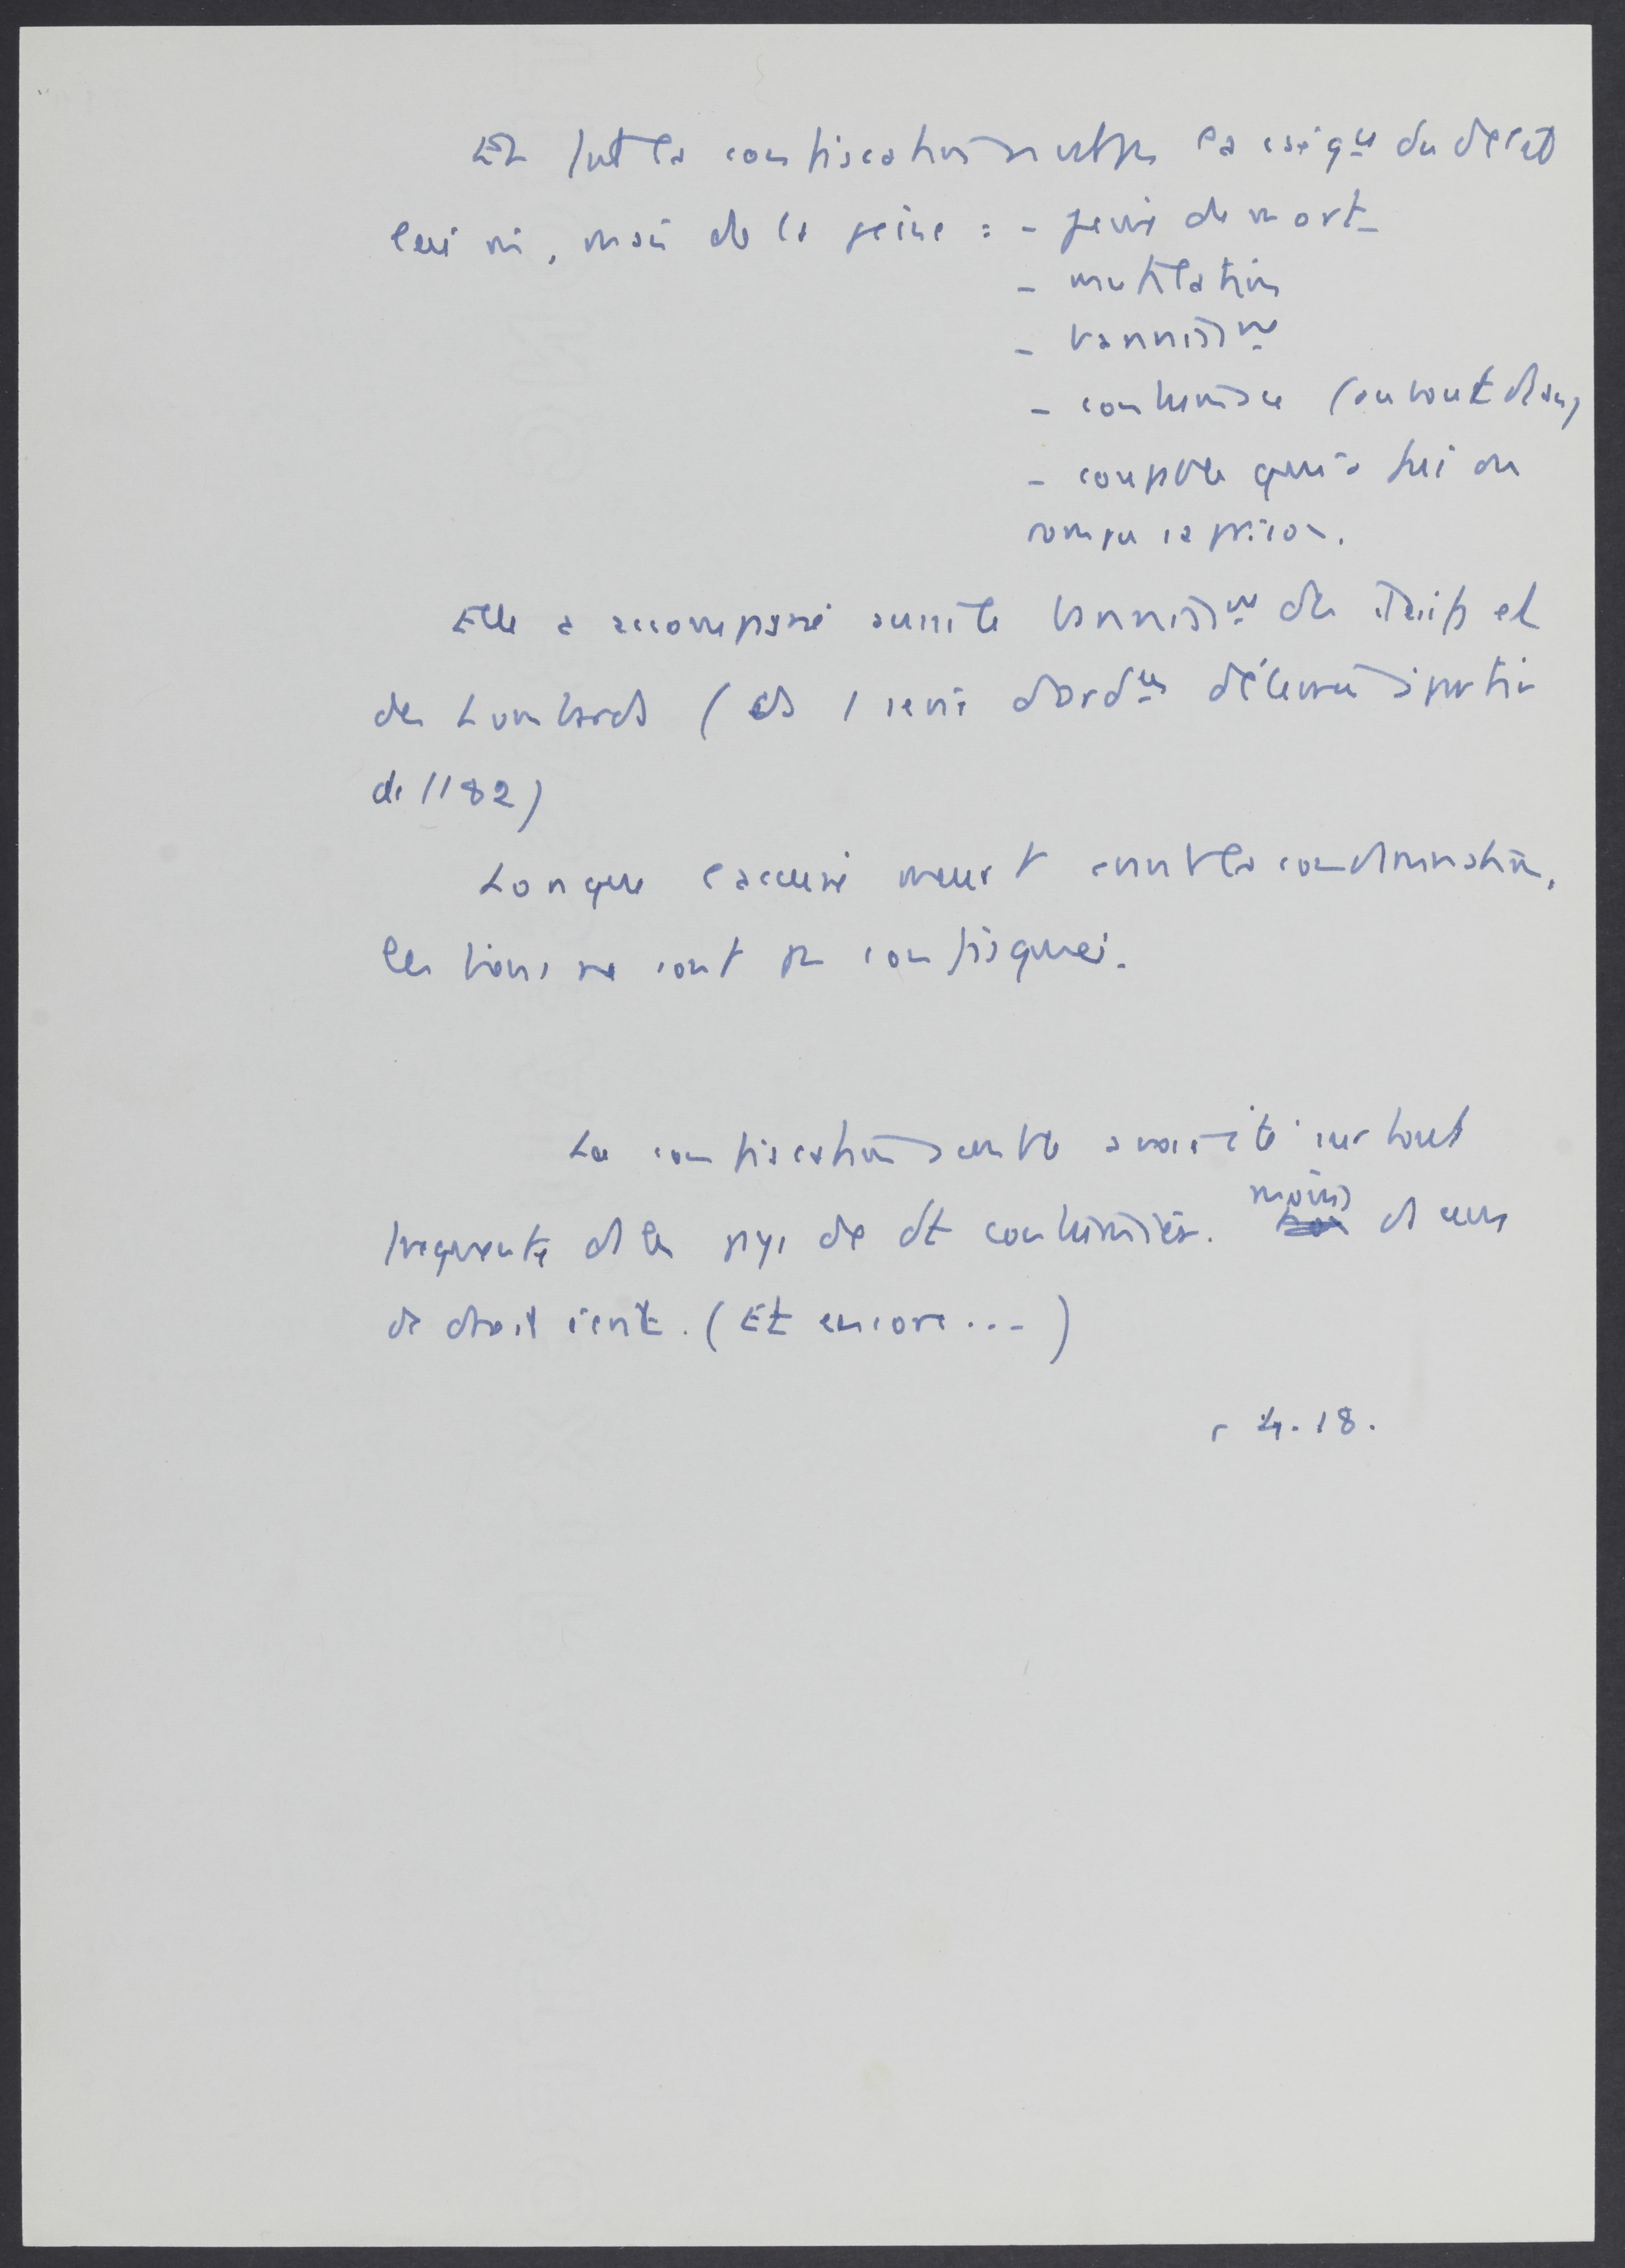 la confiscation n'est pas la conséq^ce du délit
lui m̂, mais de la peine : - peine de mort
- mutilation
- banniss^mt
- contumace
- coupable qui a fui ou
rompu sa prison.
Elle a accompagné aussi le banniss^mt des Juifs et
des Lombards ( 1 série d'ord^ces à partir
de 1182)
Lorsque l'accusé meurt avant la condamnation,
les biens ne sont pas confisqués.
La confiscation semble avoir été surtout
fréquente ds les pays de dt coutumier. moins ds ceux
de droit écrit. (Et encore ...)
4. 18.